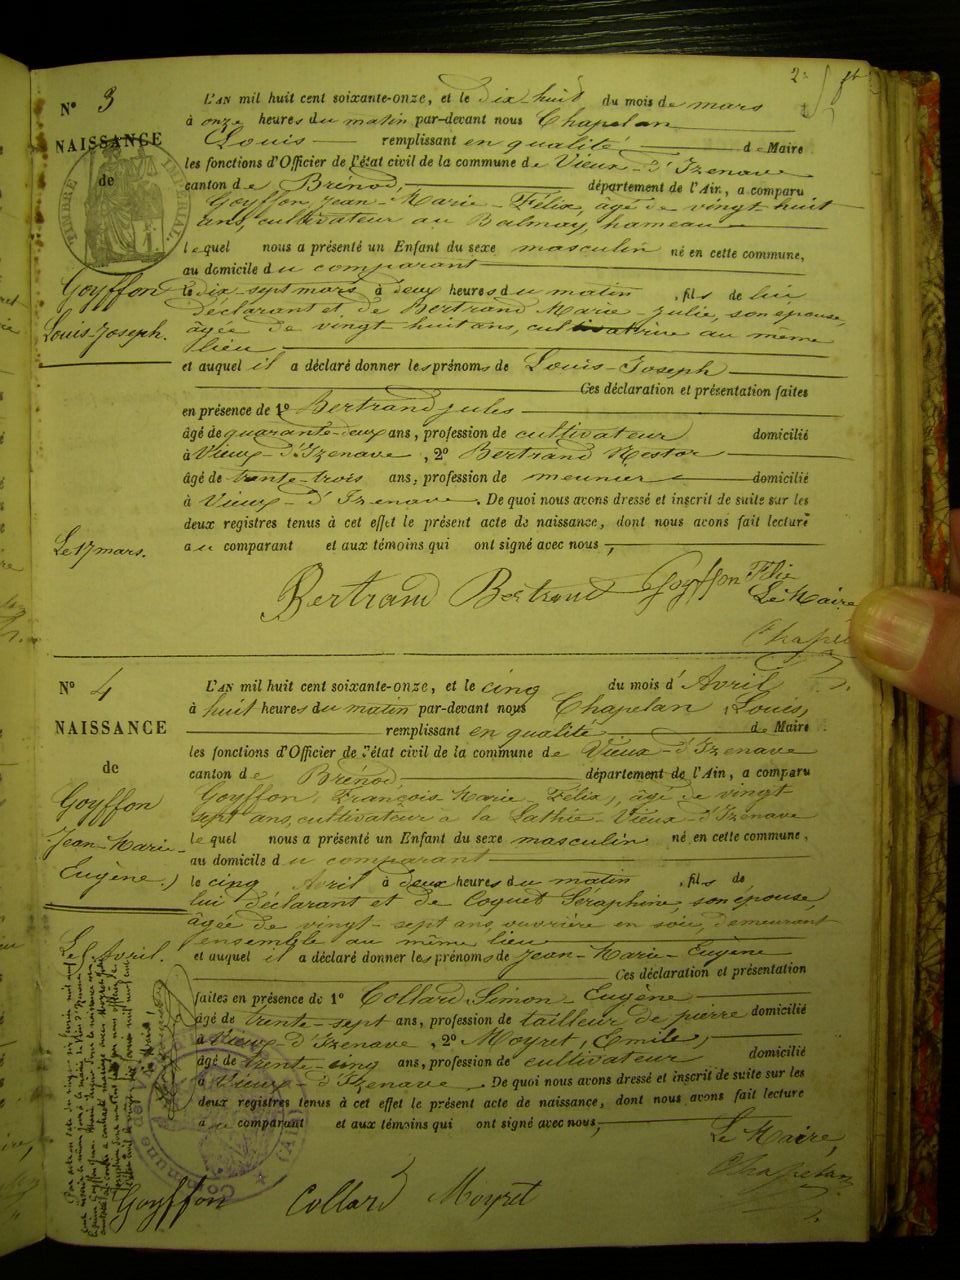 2
N° 3
NAISSANCE
de
TIMBRE IMPERIAL
Goyffon
Louis-Joseph.
Le 17 mars.
L'AN mil huit cent soixante-onze, et le dix-huit du mois de mars
à onze heures du matin par-devant nous Chapelan
Louis remplissant en qualité de Maire
les fonctions d'Officier de l'état civil de la commune de Vieux-d'Izenave
canton de Brénod, département de l'Ain, a comparu
Goyffon, Jean-Marie-Félix, âgé de vingt huit
ans, cultivateur au Balmay, hameau
lequel nous a présenté un Enfant du sexe masculin né en cette commune,
au domicile du comparant
le dix-sept mars à deux heures du matin, fils de lui
déclarant et de Bertrand Marie-Julie, son épouse,
âgée de vingt huit ans, cultivatrice au même
lieu
et auquel il a déclaré donner les prénoms de Louis-Joseph
Ces déclaration et présentation faites
en présence de 1° Bertrand Jules
âgé de quarante-deux ans, profession de cultivateur domicilié
à Vieux-d'Izenave, 2° Bertrand Nestor
âgé de trente-trois ans, profession de meunier domicilié
à Vieux-d'Izenave. De quoi nous avons dressé et inscrit de suite sur les
deux registres tenus à cet effet le présent acte de naissance, dont nous avons fait lecture
au comparant et aux témoins qui ont signé avec nous,
Bertrand Bertrand Goyffon Félix
Le Maire
Chapel
N° 4
NAISSANCE
de
Goyffon
Jean-Marie-
Eugène.
Le 5 Avril.
L'AN mil huit cent soixante-onze, et le cinq du mois d'Avril
à huit heures du matin par-devant nous Chapelan, Louis,
remplissant en qualité de Maire
les fonctions d'Officier de l'état civil de la commune de Vieux-d'Izenave
canton de Brénod département de l'Ain, a comparu
Goyffon, François-Marie-Félix, âgé de vingt
sept ans, cultivateur à la Vieux-d'Izenave
lequel nous a présenté un Enfant du sexe masculin né en cette commune,
au domicile du comparant
le cinq Avril à deux heures du matin, fils de
lui déclarant et de Coquet Séraphine, son épouse,
âgée de vingt-sept ans, ouvrière en soie, demeurant
ensemble au même lieu
et auquel il a déclaré donner les prénoms de Jean-Marie-Eugène
Ces déclaration et présentation
faites en présence de 1° Collard Simon-Eugène
âgé de trente-sept ans, profession de tailleur de pierre domicilié
à Vieux-d'Izenave, 2° Moyret, Emile,
âgé de trente-cinq ans, profession de cultivateur domicilié
à Vieux-d'Izenave. De quoi nous avons dressé et inscrit de suite sur les
deux registres tenus à cet effet le présent acte de naissance, dont nous avons fait lecture
au comparant et aux témoins qui ont signé avec nous,
Le Maire,
Chapelan
Goyffon Collard Moyret